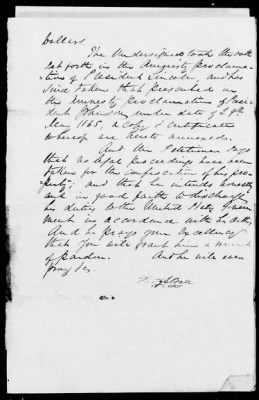 Dollars
The Undersigned took the oath
set forth in the Amnesty proclama-
tion of President Lincoln, and has
since taken that prescribed in
the Amnesty proclamation of Presi-
dent Johnson under date of 29th
May 1865. a Copy & certificate
whereof are hereto annexed.
And Your Petitioner says
that no legal proceedings have been
taken for the confiscation of his pro-
perty; and that he intends honestly
and in good faith to discharge
his duties to the United States Govern-
ment in accordance with his oaths.
And he prays your Excellency
that you will grant him a
of pardon. And he will ever
pray &c.
Ball